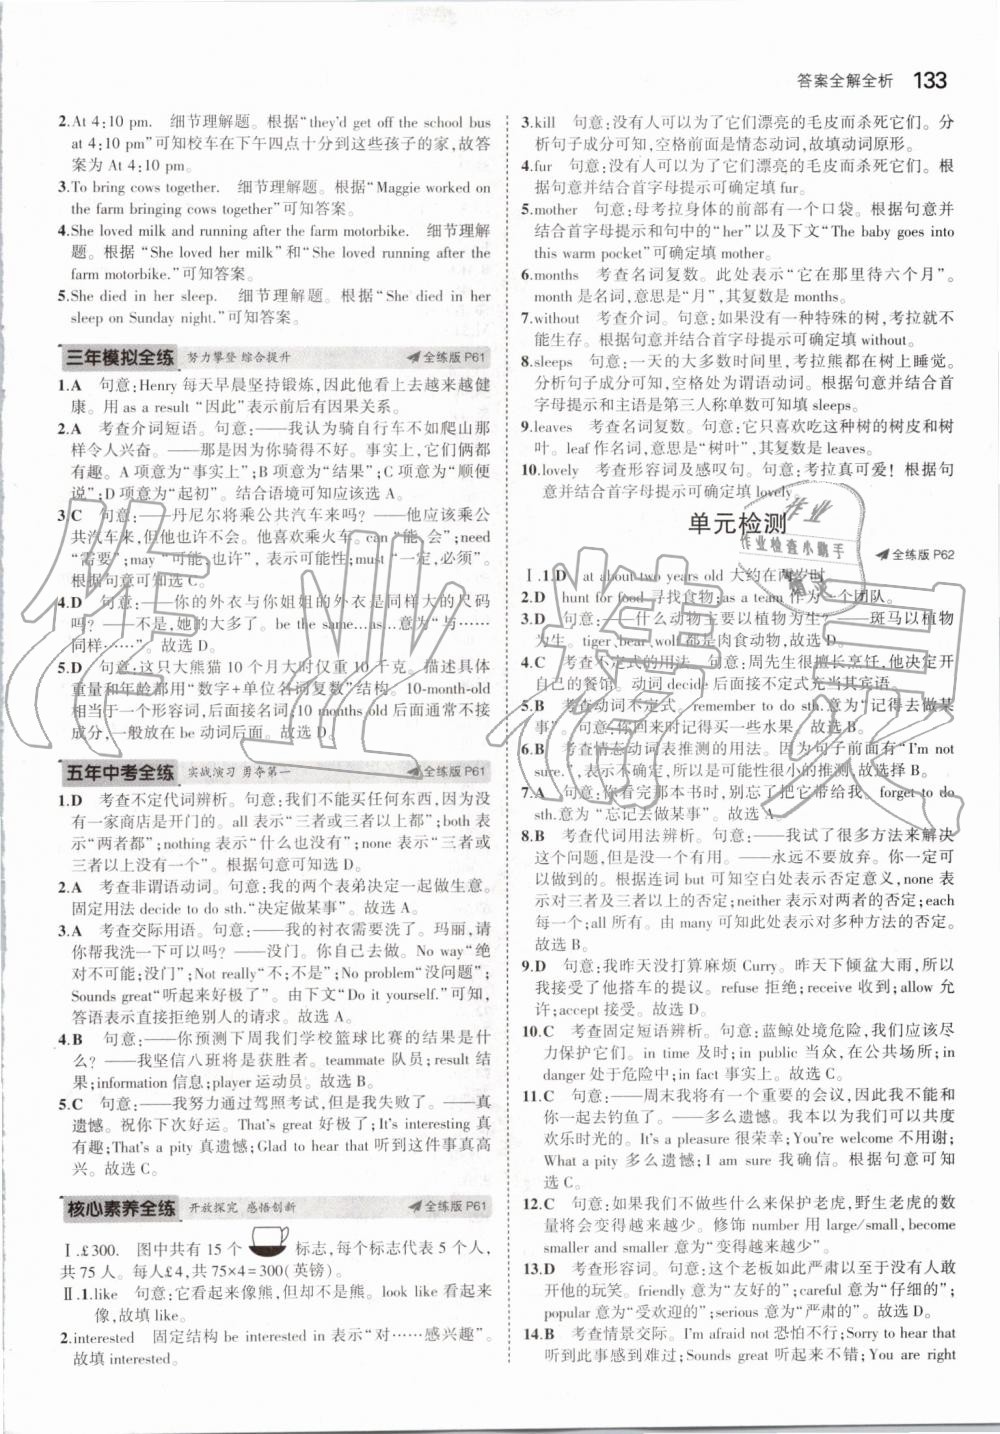 答案全解全析 133
2.At 4:10 pm. 细节理解题。根据“they'd get off the school bus
at 4:10 pm.”可知校车在下午四点十分到这些孩子的家,故答
案为 At 4:10 pm.。
3.To bring cows together. 细节理解题。根据“Maggie worked on
the farm bringing cows together”可知答案。
4.She loved milk and running after the farm motorbike. 细节理解
题。根据 “She loved her milk”和“She loved running after the
farm motorbike.”可知答案。
5.She died in her sleep. 细节理解题。根据“She died in her
sleep on Sunday night.”可知答案。
三年模拟全练 努力攀登 综合提升 全练版 P61
1.A 句意:Henry 每天早晨坚持锻炼,因此他看上去越来越健
康。用 as a result “因此”表示前后有因果关系。
2.A 考查介词短语。句意:——我认为骑自行车不如爬山那
样令人兴奋。——那是因为你骑得不好。事实上,它们俩都
有趣。A 项意为“事实上”;B 项意为“结果”;C 项意为“顺便
说”;D 项意为“起初”。结合语境可知应该选 A。
3.C 句意:——丹尼尔将乘公共汽车来吗?——他应该乘公
共汽车来,但他也许不会。他喜欢乘火车。can“能,会”;need
“需要”;may“可能,也许”,表示可能性;must“一定,必须”。
根据句意可知选 C。
4.D 句意:——你的外衣与你姐姐的外衣是同样大的尺码
吗?——不是,她的大多了。be the same...as...意为“与……
同样……”。故选 D。
5.D 句意:这只大熊猫 10 个月大时仅重 10 千克。描述具体
重量和年龄都用“数字+单位名词复数”结构。10-month-old
相当于一个形容词,后面接名词,10 months old 后面通常不接
成分,一般放在 be 动词后面。故选 D。
五年中考全练 实战演习 勇夺第一 全练版 P61
1.D 考查不定代词辨析。句意:我们不能买任何东西,因为没
有一家商店是开门的。all 表示“三者或三者以上都”;both 表
示“两者都”;nothing 表示“什么也没有”;none 表示“三者或
三者以上没有一个”。根据句意可知选 D。
2.A 考查非谓语动词。句意:我的两个表弟决定一起做生意。
固定用法 decide to do sth.“决定做某事”。故选 A。
3.A 考查交际用语。句意:——我的衬衣需要洗了。玛丽,请
你帮我洗一下可以吗?——没门。你自己去做。No way“绝
对不可能;没门”;Not really“不;不是”;No problem“没问题”;
Sounds great“听起来好极了”。由下文“Do it yourself.”可知,
答语表示直接拒绝别人的请求。故选 A。
4.B 句意:——你预测下周我们学校篮球比赛的结果是什
么?——我坚信八班将是获胜者。teammate 队员;result 结
果;information 信息;player 运动员。故选 B。
5.C 句意:——我努力通过驾照考试,但是我失败了。——真
遗憾。祝你下次好运。That's great 好极了;It's interesting 真
有趣;That's a pity 真遗憾;Glad to hear that 听到这件事真高
兴。故选 C。
核心素养全练 开放探究 感悟创新 全练版 P61
Ⅰ.£300. 图中共有 15 个 标志,每个标志代表 5 个人,
共 75 人。每人£4,共 75×4=300(英镑)。
Ⅱ.1.like 句意:它看起来像熊,但却不是熊。look like 看起来
像,故填 like。
2.interested 固定结构 be interested in 表示“对……感兴趣”。
故填 interested。
3.kill 句意:没有人可以为了它们漂亮的毛皮而杀死它们。分
析句子成分可知,空格前面是情态动词,故填动词原形。
4.fur 句意:没有人可以为了它们漂亮的毛皮而杀死它们。根
据句意并结合首字母提示可确定填 fur。
5.mother 句意:母考拉身体的前部有一个口袋。根据句意并
结合首字母提示和句中的“her”以及下文“The baby goes into
this warm pocket”可确定填 mother。
6.months 考查名词复数。此处表示“它在那里待六个月”。
month 是名词,意思是“月”,其复数是 months。
7.without 考查介词。句意:如果没有一种特殊的树,考拉就不
能生存。根据句意并结合首字母提示可确定填 without。
8.sleeps 句意:一天的大多数时间里,考拉熊都在树上睡觉。
分析句子成分可知,空格处为谓语动词。根据句意并结合首
字母提示和主语是第三人称单数可知填 sleeps。
9.leaves 考查名词复数。句意:它只喜欢吃这种树的树皮和树
叶。leaf 作名词,意思是“树叶”,其复数是 leaves。
10.lovely 考查形容词及感叹句。句意:考拉真可爱!根据句
意并结合首字母提示可确定填 lovely。
单元检测
全练版 P62
Ⅰ.1.D at about two years old 大约在两岁时
2.D hunt for food 寻找食物;as a team 作为一个团队。
3.D 句意:——什么动物主要以植物为生?——斑马以植物
为生。tiger,bear,wolf 都是肉食动物,故选 D。
4.C 考查不定式的用法。句意:周先生很擅长烹饪,他决定开
自己的餐馆。动词 decide 后面接不定式充当其宾语。
5.B 考查动词不定式。remember to do sth.意为“记得去做某
事”。句意:你回来时记得买一些水果。故选 B。
6.B 考查情态动词表推测的用法。因为句子前面有“I'm not
sure.”,所以这里表示可能性很小的推测,故选 B。
7.A 句意:你看完那本书时,别忘了把它带给我。forget to do
sth.意为 “忘记去做某事”。故选 A。
8.B 考查代词用法辨析。句意:——我试了很多方法来解决
这个问题,但没有一个有用。——永远不要放弃。你一定可
以的。根据连词 but 可知空白处表示否定意义,none 表示
对三者及三者以上的否定;neither 表示对两者的否定;each
每一个;all 所有。由 many 可知此处表示对多种方法的否定。
故选 B。
9.D 句意:我昨天没打算麻烦 Curry。昨天下倾盆大雨,所以
我接受了他搭车的提议。refuse 拒绝;receive 收到;allow 允
许;accept 接受。故选 D。
10.C 考查固定短语辨析。句意:蓝鲸处境危险,我们应该尽
力保护它们。in time 及时;in public 当众,在公共场所;in
danger 处于危险中;in fact 事实上。故选 C。
11.C 句意:——周末我将有一个重要的会议,因此我不能和
你一起去钓鱼了。——多么遗憾。我本以为我们可以共度
欢乐时光的。It's a pleasure 很荣幸;You're welcome 不用谢;
What a pity 多么遗憾;That's right 对了。根据句意可知
选 C。
12.C 句意:如果我们不做些什么来保护老虎,野生老虎的数
量将会变得越来越少。修饰 number 用 large/small,become
smaller and smaller 意为“变得越来越少”。
13.D 考查形容词。句意:这个老板如此严肃以至于没有人敢
开他的玩笑。friendly 意为“友好的”;careful 意为“仔细的”;
popular 意为“受欢迎的”;serious 意为“严肃的”。故选 D。
14.B 考查情景交际。I'm afraid not 恐怕不行;Sorry to hear that
听到此事感到难过;Sounds great 听起来不错;You are right
作业
作业检查小助手